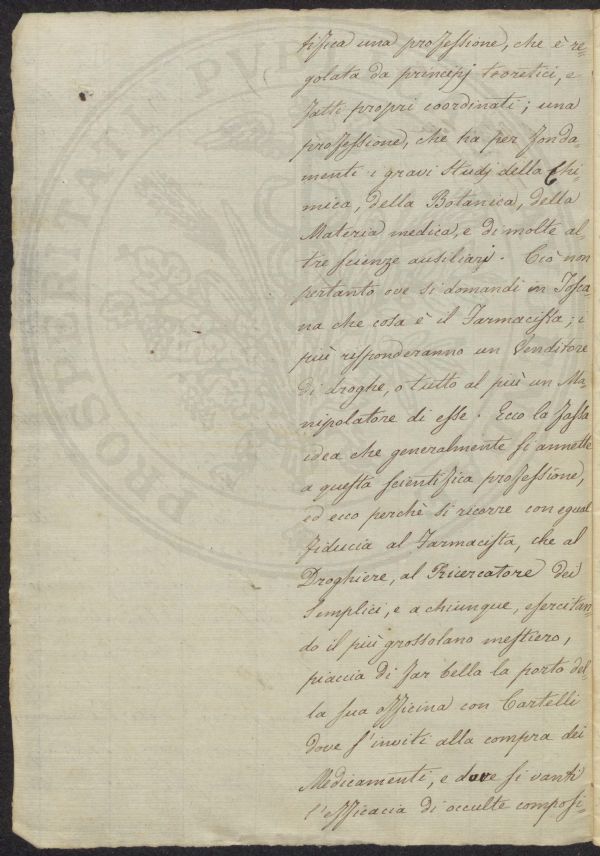 tifica una professione, che è re-
golata da principj teoretici, e
fatti propri coordinati; una
professione, che ha per fonda-
menti i gravi studj della Chi-
mica, della Botanica, della
Materia medica, e di molte al-
tre scienze ausiliarj. Ciò non
pertanto ove si domandi in Tosca-
na che cosa è il Farmacista; i
più risponderanno un Venditore
di droghe, o tutto al più un Ma-
nipolatore di esse. Ecco la falsa
idea che generalmente si annette
a questa scientifica professione,
ed ecco perchè si ricorre con egual
fiducia al Farmacista, che al
Droghiere, al Ricercatore dei
Semplici, e a chiunque, esercitan-
do il più grossolano mestiero,
piaccia di far bella la porta del-
la sua officina con Cartelli
dove s'inviti alla compra dei
Medicamenti, e dove si vanti
l'efficacia di occulte composi-